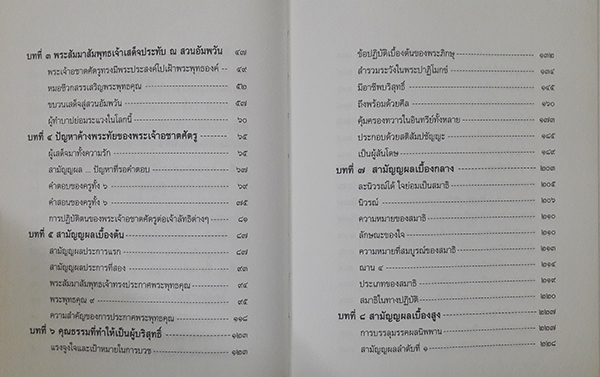 บทที่ ๓ พระสัมมาสัมพุทธเจ้าเสด็จประทับ ณ สวนอัมพวัน ๔๗
พระเจ้าอชาตศัตรูทรงมีพระประสงค์ไปเฝ้าพระพุทธองค์ ๔๙
หมอชีวกสรรเสริญพระพุทธคุณ ๕๒
ขบวนเสด็จสู่สวนอัมพวัน ๕๗
ผู้ทำบาปย่อมระแวงในโลกนี้ ๖๐
บทที่ ๔ ปัญหาค้างพระทัยของพระเจ้าอชาตศัตรู ๖๕
ผู้เสด็จมาทั้งความรัก ๖๕
สามัญญผล ... ปัญหาที่รอคำตอบ ๖๗
คำตอบของครูทั้ง ๖ ๖๙
คำสอนของครูทั้ง ๖ ๗๕
การปฏิบัติตนของพระเจ้าอชาตศัตรูต่อเจ้าลัทธิต่างๆ ๘๑
บทที่ ๕ สามัญญผลเบื้องต้น ๘๗
สามัญญผลประการแรก ๘๗
สามัญญผลประการที่สอง ๙๓
พระสัมมาสัมพุทธเจ้าทรงประกาศพระพุทธคุณ ๙๕
พระพุทธคุณ ๙ ๙๕
ความสำคัญของการประกาศพระพุทธคุณ ๑๑๘
บทที่ ๖ คุณธรรมที่ทำให้เป็นผู้บริสุทธิ์ ๑๒๓
แรงจูงใจและเป้าหมายในการบวช ๑๒๓
ข้อปฏิบัติเบื้องต้นของพระภิกษุ ๑๓๒
สำรวมระวังในพระปาฏิโมกข์ ๑๓๔
มีอาชีพบริสุทธิ์ ๑๔๕
ถึงพร้อมด้วยศีล ๑๖๐
คุ้มครองทวารในอินทรีย์ทั้งหลาย ๑๗๗
ประกอบด้วยสติสัมปชัญญะ ๑๘๓
เป็นผู้สันโดษ ๑๘๙
บทที่ ๗ สามัญญผลเบื้องกลาง ๒๐๓
ละนิวรณ์ได้ ใจย่อมเป็นสมาธิ ๒๐๕
นิวรณ์ ๒๐๖
ความหมายของสมาธิ ๒๑๐
ลักษณะของใจ ๒๑๑
ความหมายที่สมบูรณ์ของสมาธิ ๒๑๓
ฌาน ๔ ๒๑๔
ประเภทของสมาธิ ๒๑๙
สมาธิในทางปฏิบัติ ๒๒๐
บทที่ ๘ สามัญญผลเบื้องสูง ๒๒๗
การบรรลุมรรคผลนิพพาน ๒๒๗
สามัญญผลลำดับที่ ๑ ๒๒๘